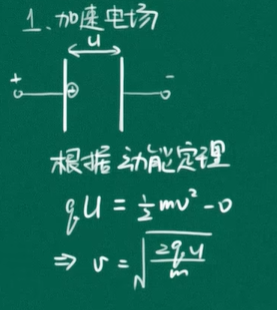 1、加速电场
U
+ ⊕ -
根据动能定理
qU = ½mv² - 0
⇒ v = √(2qU/m)